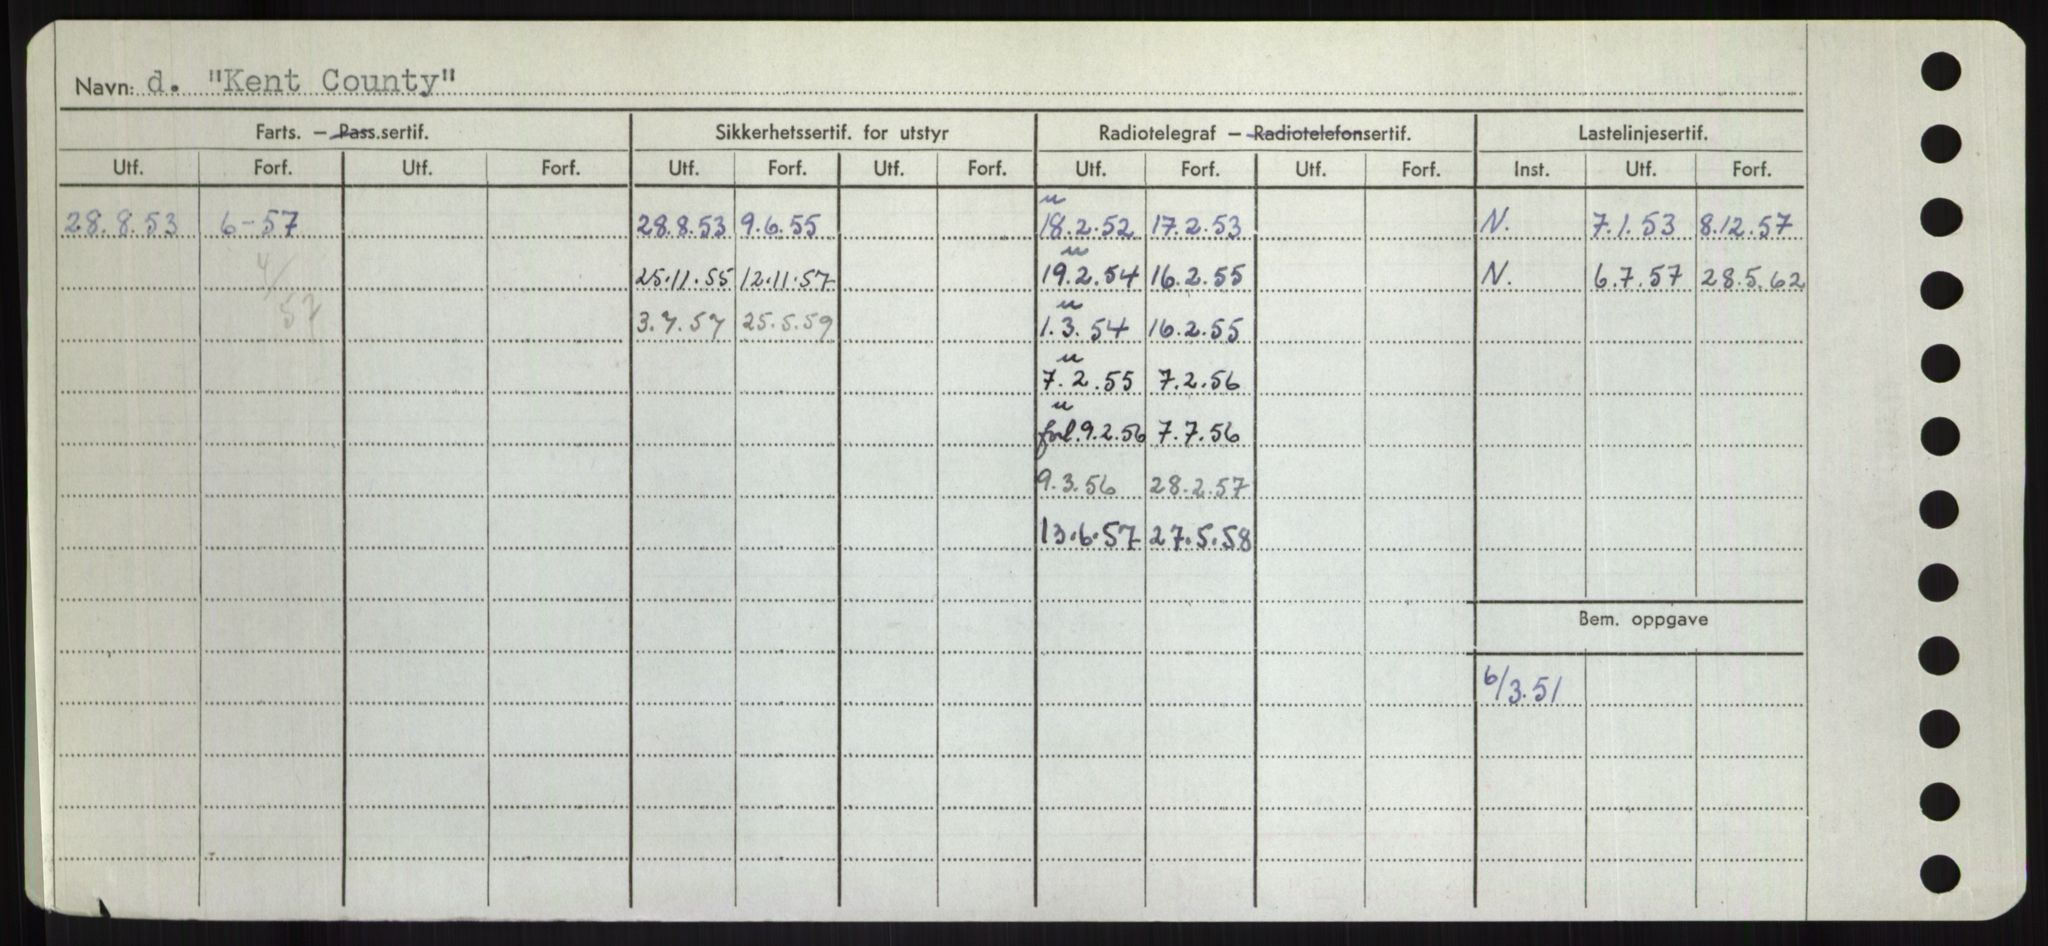 Navn: d. "Kent County"
Farts. — Pass.sertif. Sikkerhetssertif. for utstyr Radiotelegraf — Radiotelefonsertif. Lastelinjesertif.
Utf. Forf. Utf. Forf. Utf. Forf. Utf. Forf. Utf. Forf. Utf. Forf. Inst. Utf. Forf.
u
28.8.53 6-57 28.8.53 9.6.55 18.2.52 17.2.53 N. 7.1.53 8.12.57
u
4/57 25.11.55 12.11.57 19.2.54 16.2.55 N. 6.7.57 28.5.62
u
3.7.57 25.5.59 1.3.54 16.2.55
u
7.2.55 7.2.56
u
forl.9.2.56 7.7.56
9.3.56 28.2.57
13.6.57 27.5.58
Bem. oppgave
6/3.51